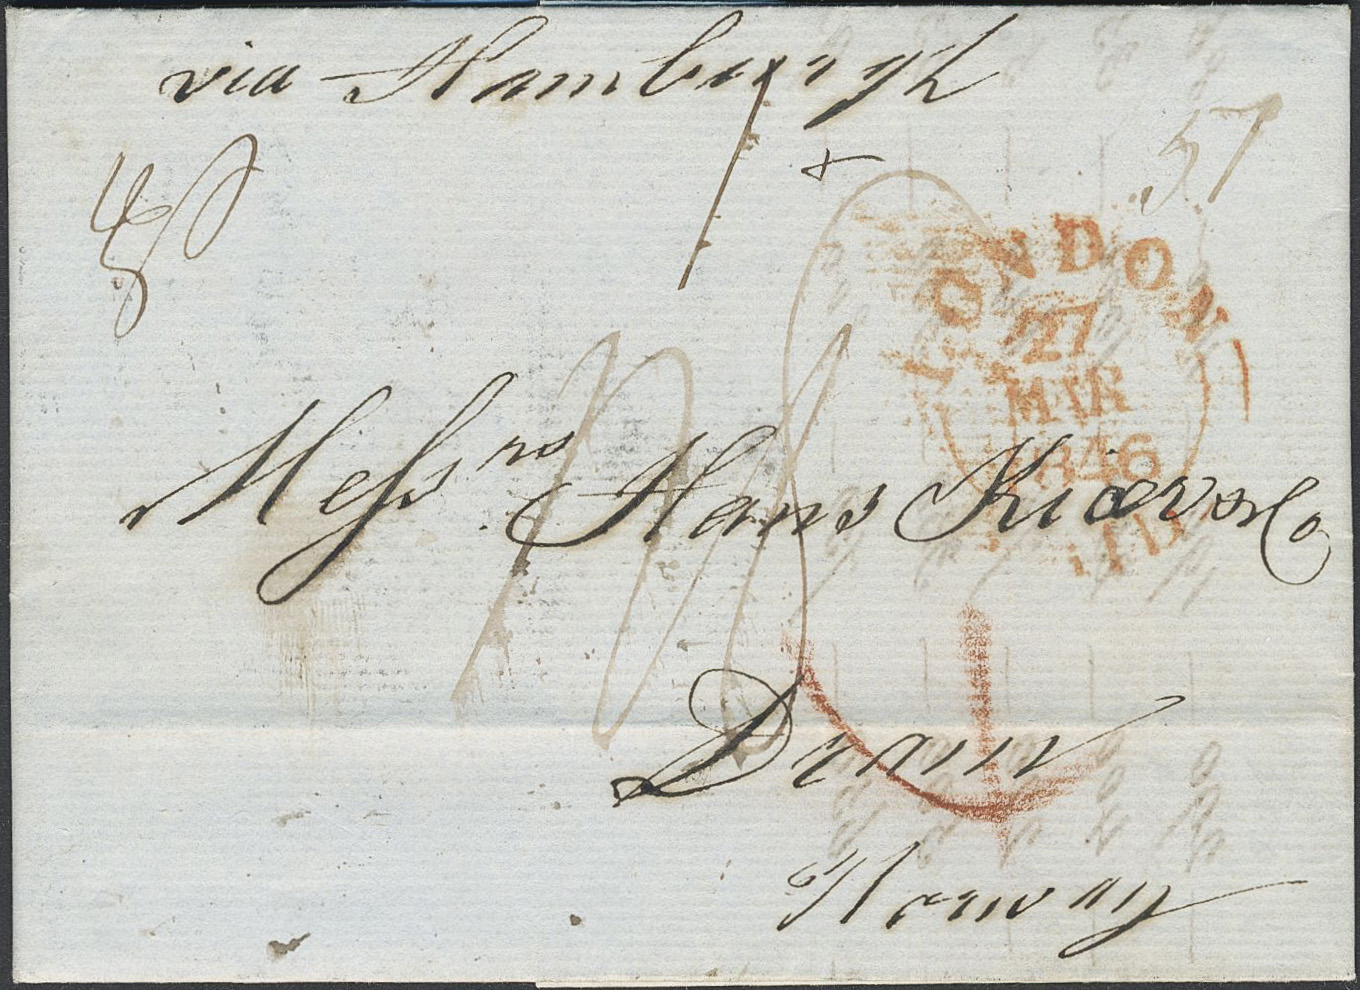 via Hamburgh
57
LONDON
27
MAR
1846
Messrs Hans Kiær & Co
Dram
Norway